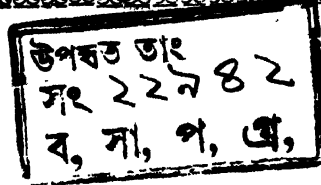 উপহৃত তাং
সং ২২৯৪২
ব, সা, প, গ্র,